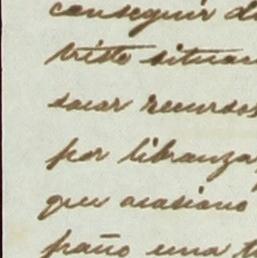 conseguir di
triste situac
sacar recursos
por libranza,
que ocasiono
paño una t